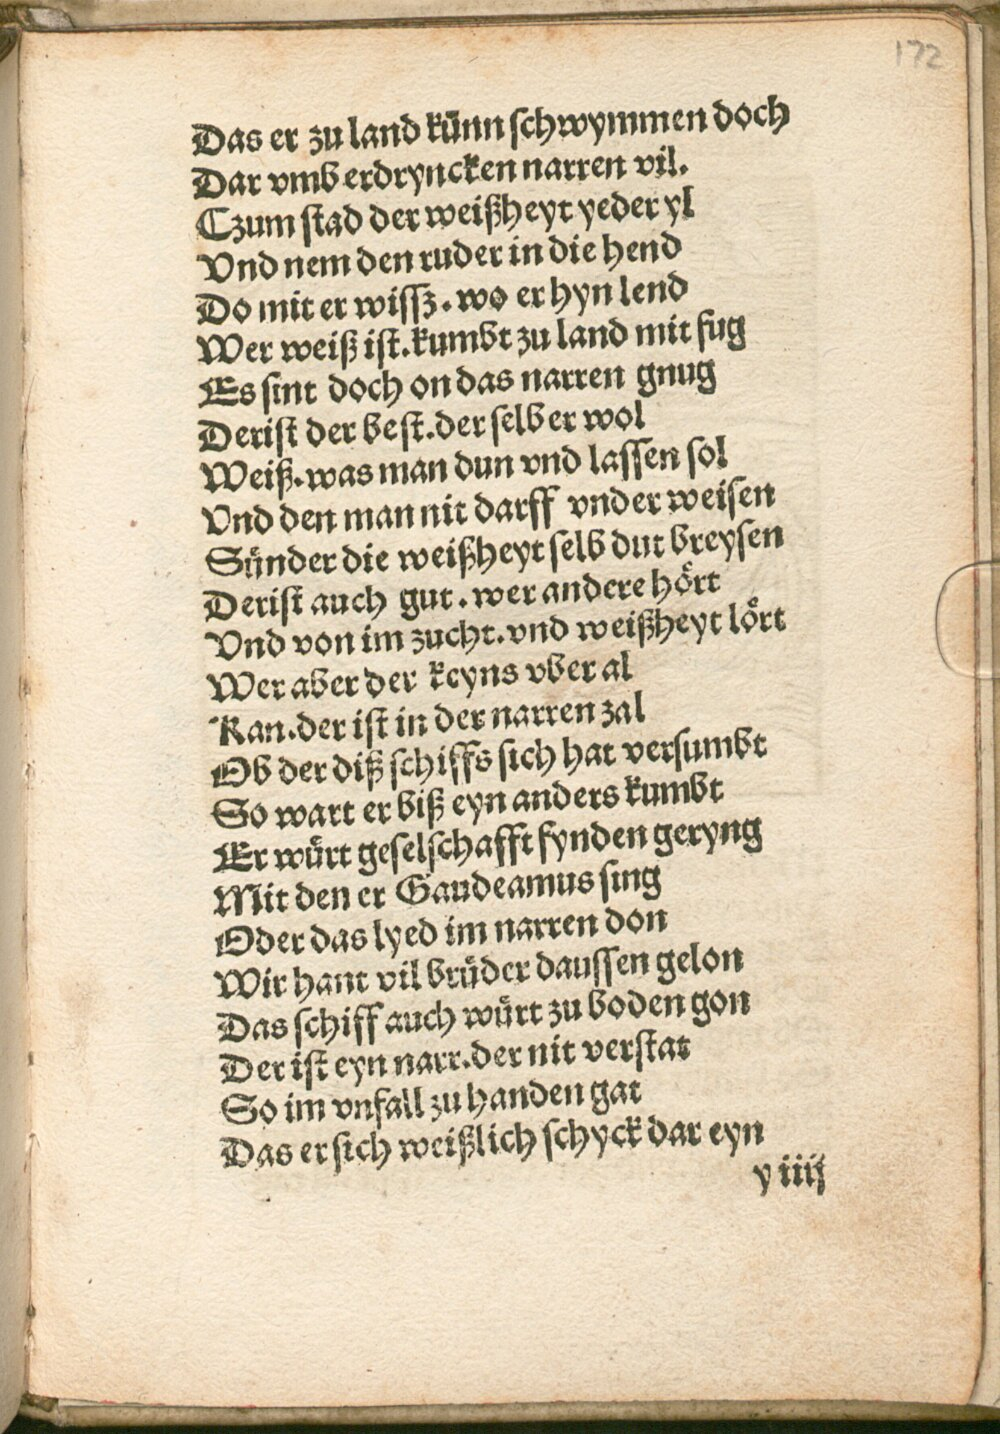 172
Das er zu land künn schwymmen doch
Dar vmb erdryncken narren vil.
Czum stad der weißheyt yeder yl
Vnd nem den ruder in die hend
Do mit er wissz. wo er hyn lend
Wer weiß ist. kumbt zu land mit fug
Es sint doch on das narren gnug
Der ist der best. der selber wol
Weiß. was man dun vnd lassen sol
Vnd den man nit darff vnder weisen
Sünder die weißheyt selb dut breysen
Der ist auch gut. wer andere hört
Vnd von im zucht. vnd weißheyt lört
Wer aber der keyns vber al
Kan. der ist in der narren zal
Ob der diß schiffs sich hat versumbt
So wart er biß eyn anders kumbt
Er würt geselschafft fynden geryng
Mit den er Gaudeamus sing
Oder das lyed im narren don
Wir hant vil brüder daussen gelon
Das schiff auch würt zu boden gon
Der ist eyn narr. der nit verstat
So im vnfall zu handen gat
Das er sich weißlich schyck dar eyn
y iiij